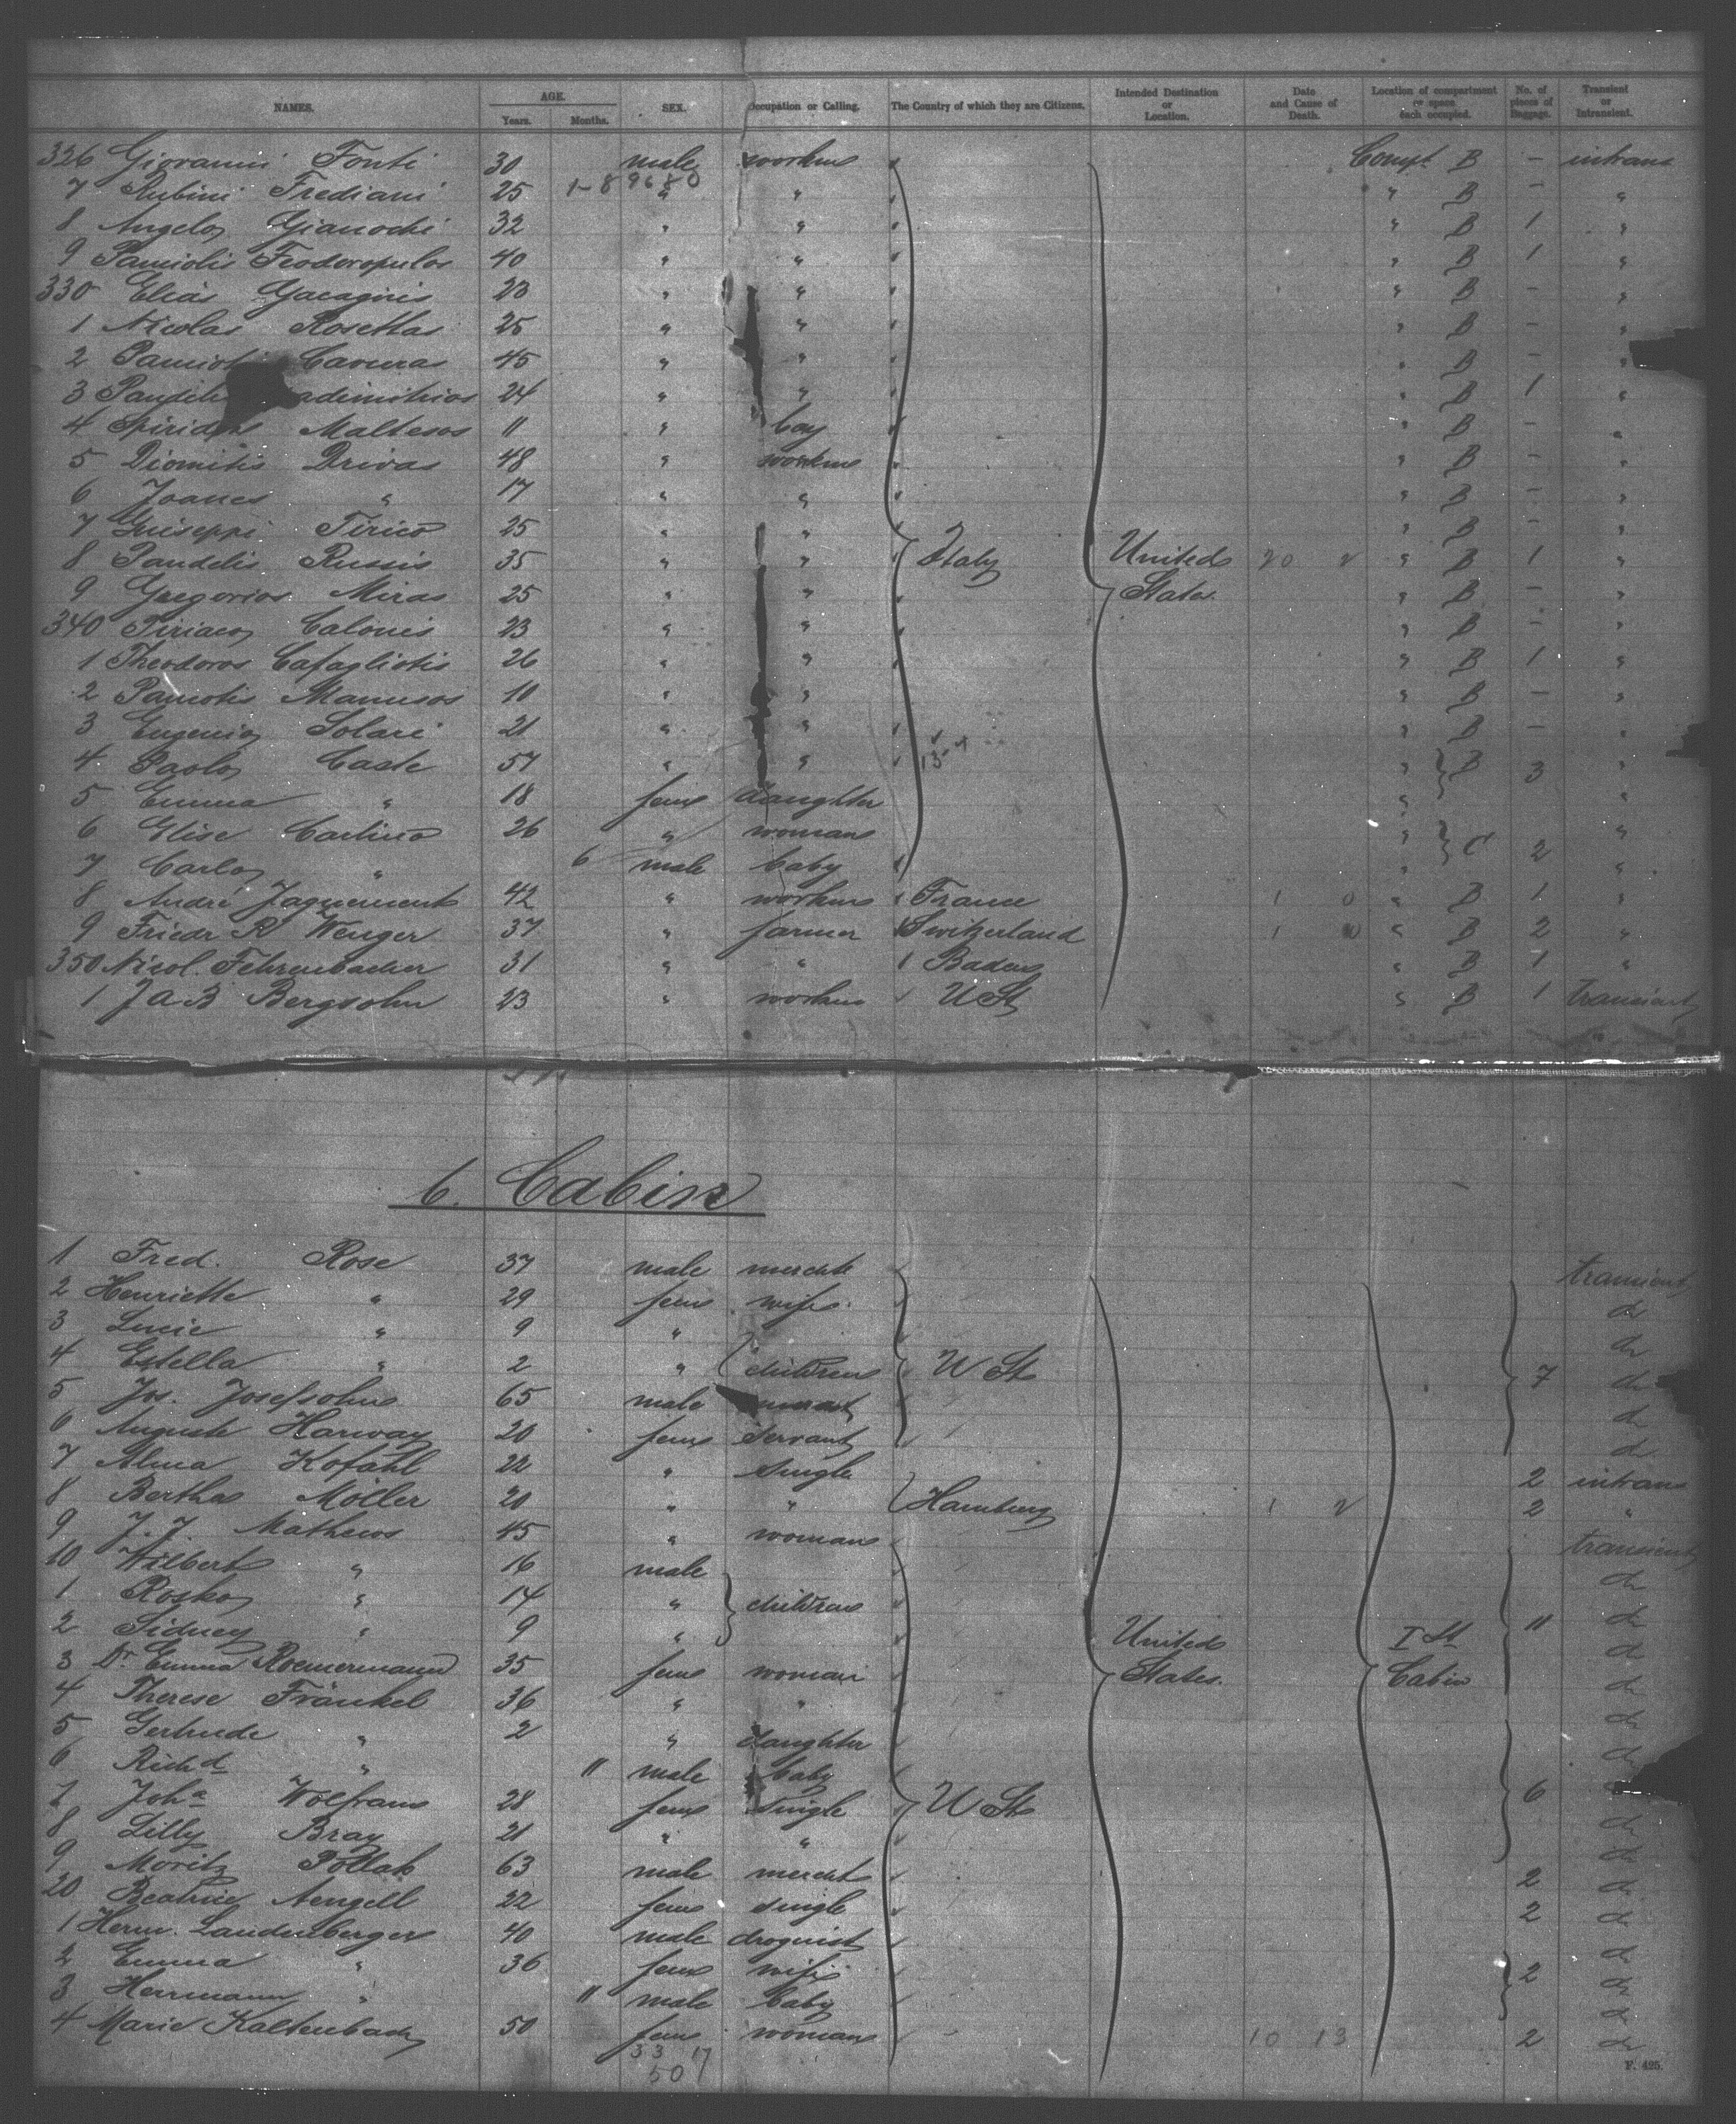 NAMES. AGE. Years. Months. SEX. Occupation or Calling. The Country of which they are Citizens. Intended Destination or Location. Date and Cause of Death. Location of compartment or space each occupied. No. of pieces of Baggage. Transient or Intransient.
326 Giovanni Fonti 30 male workm Compt B - intrans
7 Rubini Frediani 25 1-8 9680 " " " B - "
8 Angelo Gianochi 32 " " " B 1 "
9 Paniolis Feodoropulos 40 " " " B 1 "
330 Elias 23 " " " B - "
1 Nicolas Rosettas 25 " " " B - "
2 Camuras 45 " " " B - "
3 24 " " " B 1 "
4 Spiridon Maltesos 11 " boy " B - "
5 Diomitis Drivas 48 " workm " B - "
6 Joanes " 17 " " " B - "
7 Guiseppi Tirico 25 " " " B - "
8 Pandelis Russis 35 " " Italy United 20 2 " B 1 "
9 Gregorios Miras 25 " " States. " B - "
340 Piriaco Calonis 23 " " " B - "
1 Theodoros Cafagliotis 26 " " " B 1 "
2 Paniotis Manusos 10 " " " B - "
3 Eugenio Solari 21 " " " B - "
4 Paolo Caste 57 " " " B 3 "
5 Emma " 18 fem daughter " "
6 Elise Carlino 26 " woman " C 2 "
7 Carlo " 6 male baby " "
8 André Jaquement 42 " workm France 1 0 " B 1 "
9 Friedr R Wenger 37 " farmer Switzerland 1 0 " B 2 "
350 Nicol. Fehrenbacher 31 " " Baden " B 1 "
1 J A B Bergsohn 23 " workm U St " B 1 transient
6. Cabin
1 Fred. Rose 37 male merchts transient
2 Henriette " 29 fem wife do
3 Lucie " 9 " do
4 Estella " 2 " children U St 7 do
5 Jos. Josefsohn 65 male do
6 Auguste Harway 20 fem servant do
7 Alma Kofahl 22 " single 2 intrans
8 Bertha Möller 20 " " Hamburg 1 2 2 "
9 J. J. Mathews 45 " woman transient
10 Wilbert " 16 male do
1 Rosko " 14 " children 11 do
2 Sidney " 9 " United I St do
3 Dr. Emma Roemermann 35 fem woman States. Cabin do
4 Therese Fränkel 36 " " do
5 Gertrude " 2 " daughter do
6 Richd " 11 male baby do
7 Joha Wolfram 28 fem single U St 6 do
8 Lilly Bray 21 " " do
9 Moritz Pollak 63 male mercht 2 do
20 Beatrice Aengell 22 fem single 2 do
1 Herm. Laudenberger 40 male droguist do
2 Emma " 36 fem wife 2 do
3 Herrmann " 11 male baby do
4 Marie Kaltenbach 50 fem woman 10 13 2 do
33 17
50
F. 425.